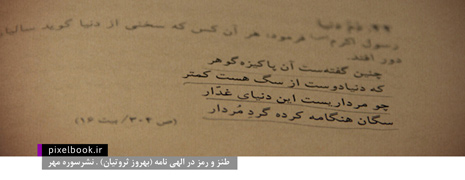 ۲۲. ذمّ دنیا
رسول اکرم فرمود، هر آن کس که سخنی از دنیا گوید سالیا
دور افتد.
چنین گفته‌ست آن پاکیزه گوهر
که دنیادوست از سگ هست کمتر
چو مرداریست این دنیای غدّار
سگان هنگامه کرده گردِ مُردار
(ص ۳۰۲/ بیت ۱۶)
pixelbook.ir
طنز و رمز در الهی نامه (بهروز ثروتیان) . نشرسوره مهر